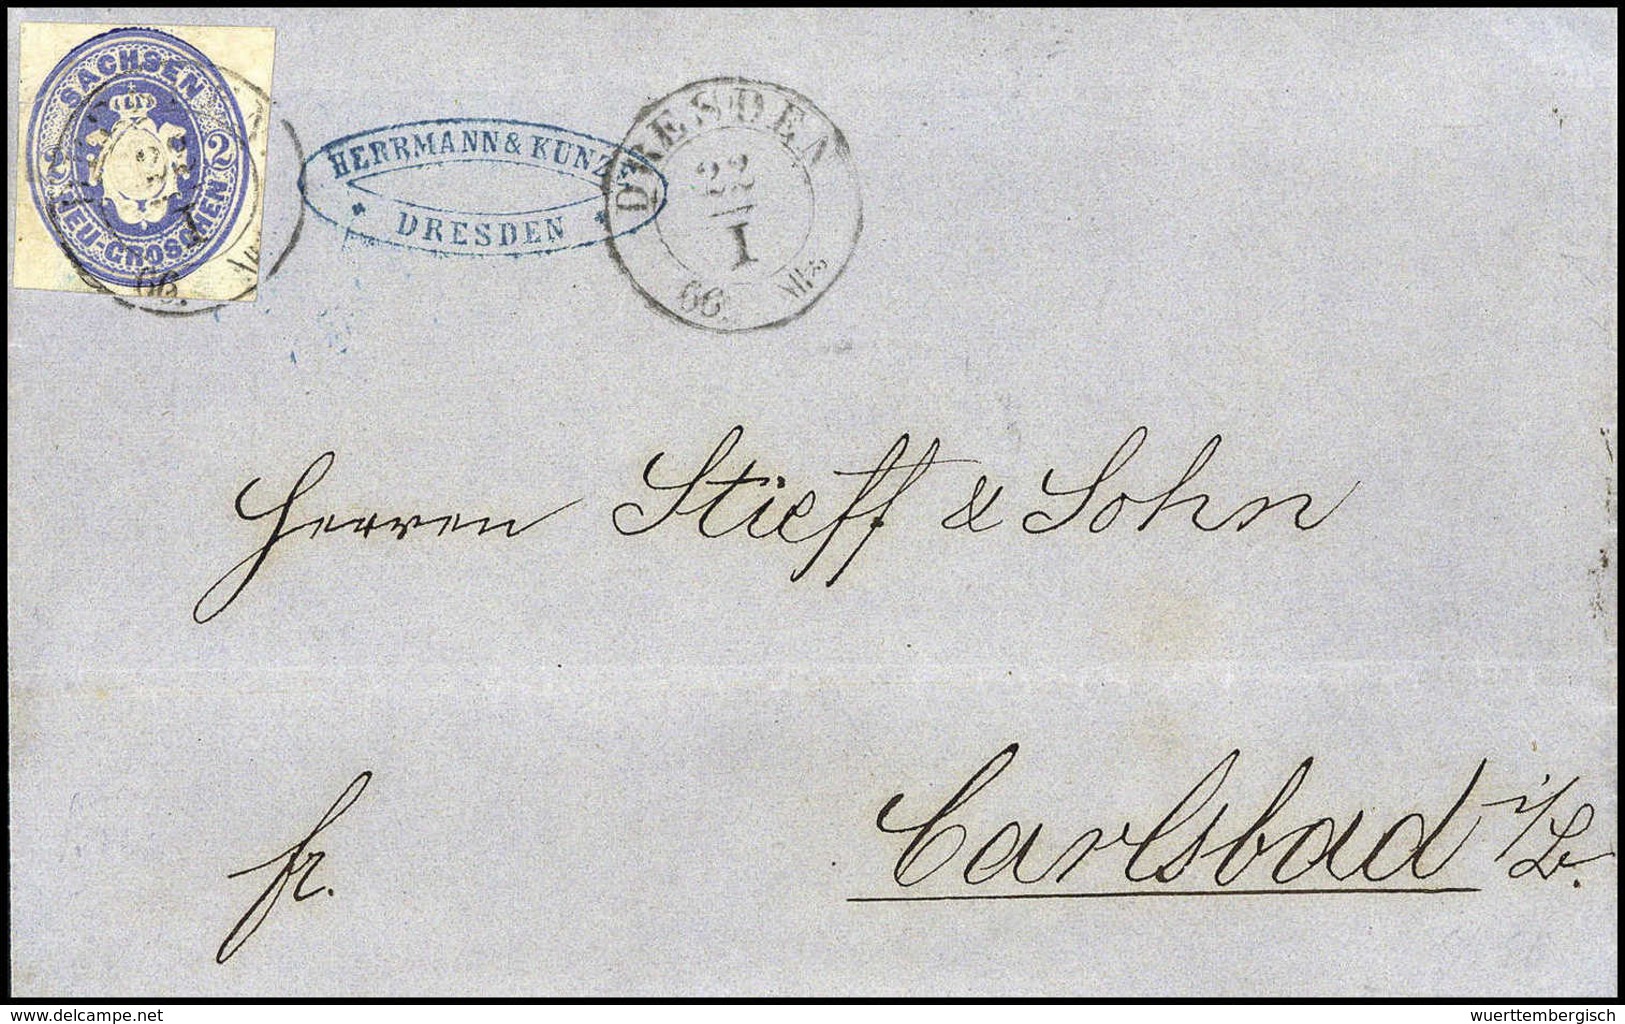 SACHSEN
2 2
NEU-GROSCHEN
22
I
66.
HERRMANN & KUNZ
* DRESDEN *
DRESDEN
22
I
66.
Herren Stieff & Sohn
fr.
Carlsbad i/B.
delcampe.net
wuerttembergisch